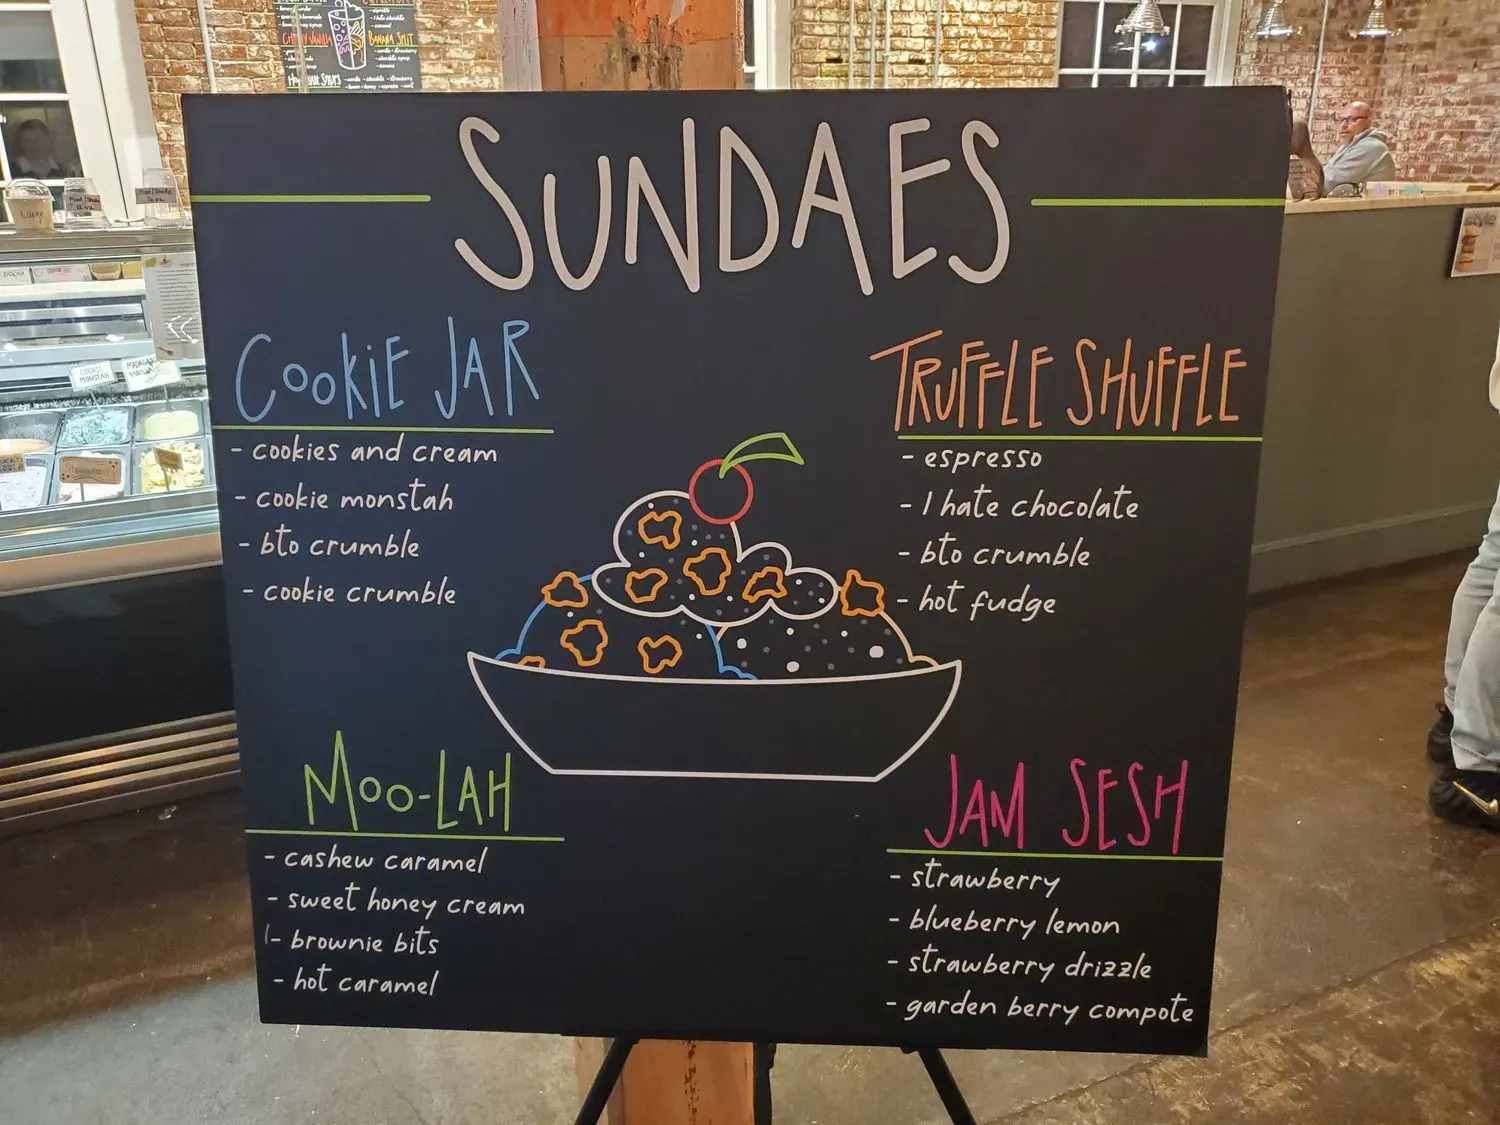 BANANA SPLIT
Large
COOKIE
MONSTAH
style
SUNDAES
COOKIE JAR
- cookies and cream
- cookie monstah
- bto crumble
- cookie crumble
TRUFFLE SHUFFLE
- espresso
- I hate chocolate
- bto crumble
- hot fudge
MOO-LAH
- cashew caramel
- sweet honey cream
- brownie bits
- hot caramel
JAM SESH
- strawberry
- blueberry lemon
- strawberry drizzle
- garden berry compote